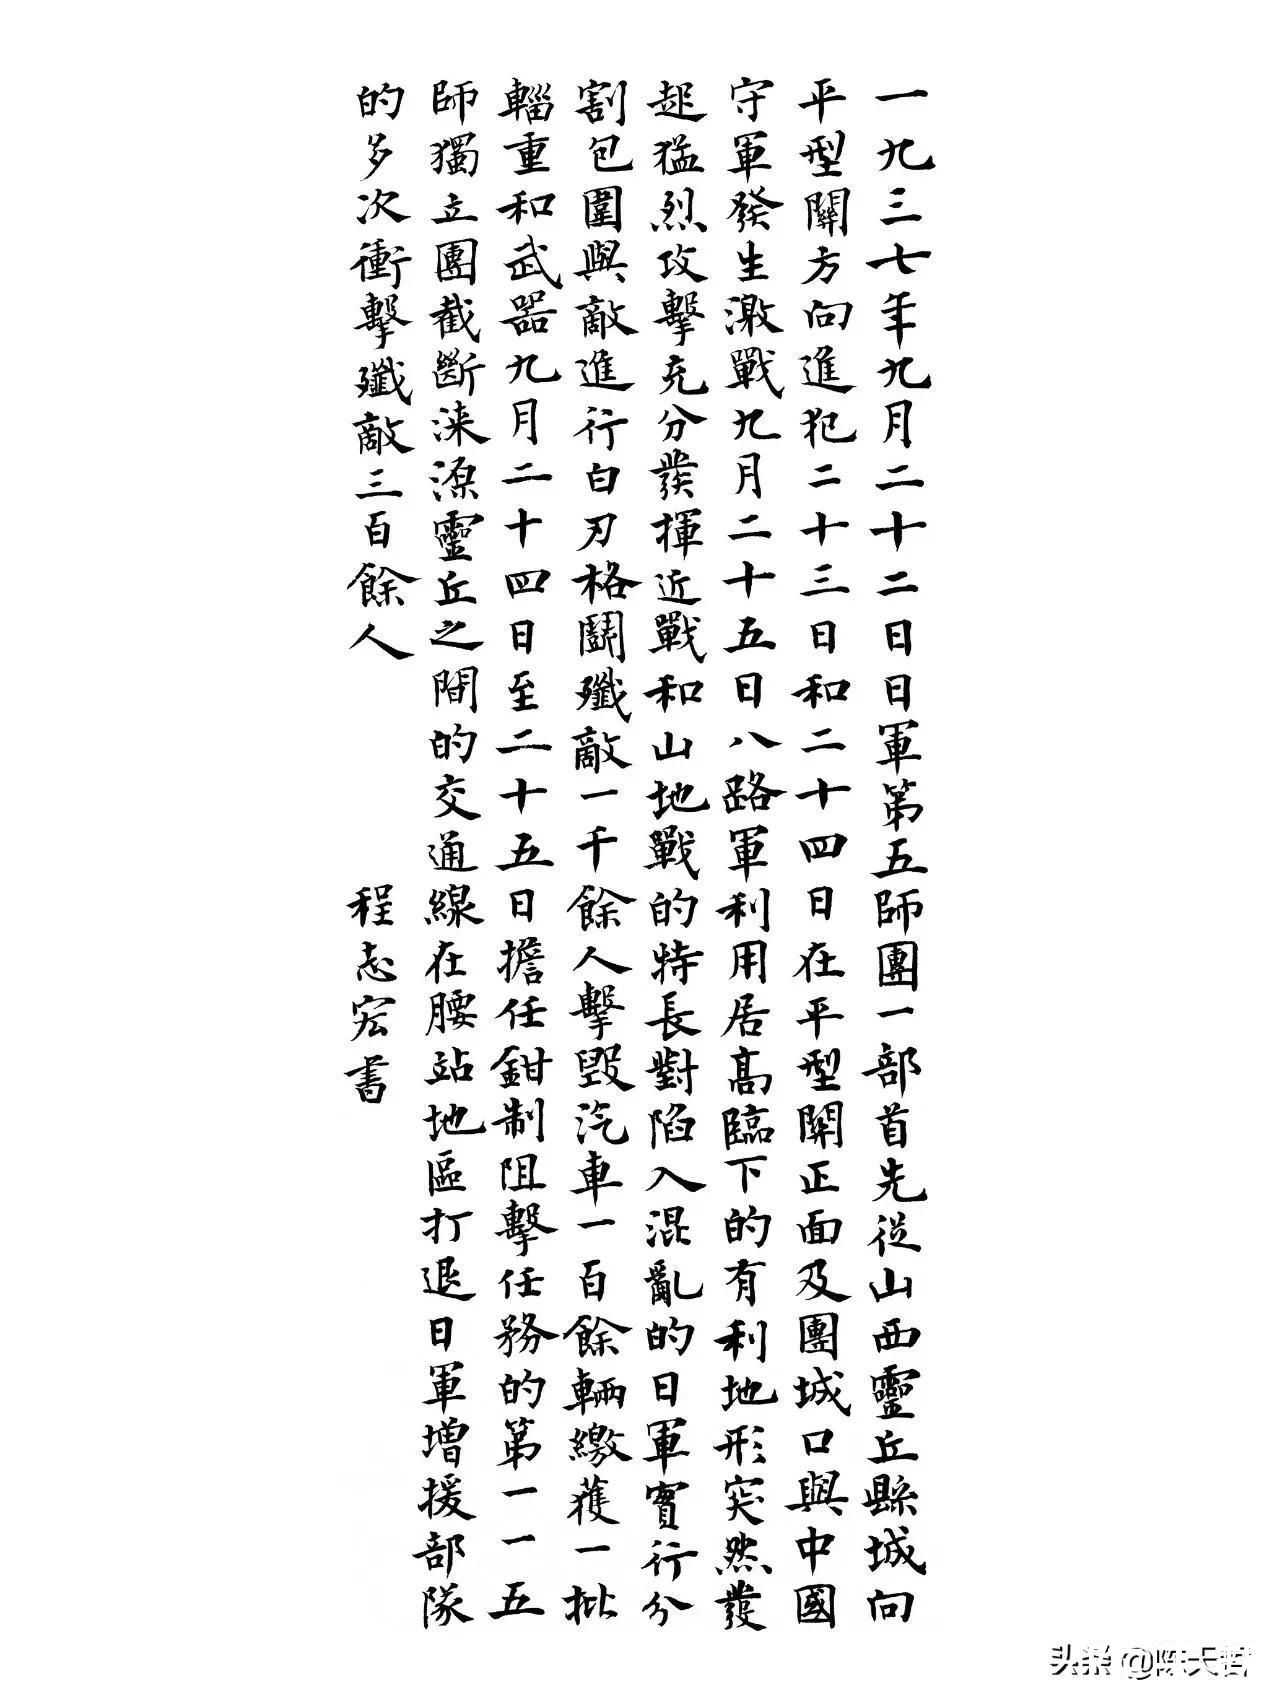 一九三七年九月二十二日日軍第五師團一部首先從山西靈丘縣城向
平型關方向進犯二十三日和二十四日在平型關正面及團城口與中國
守軍發生激戰九月二十五日八路軍利用居高臨下的有利地形突然發
起猛烈攻擊充分發揮近戰和山地戰的特長對陷入混亂的日軍實行分
割包圍與敵進行白刃格鬪殲敵一千餘人擊毀汽車一百餘輛繳獲一批
輜重和武器九月二十四日至二十五日擔任鉗制阻擊任務的第一一五
師獨立團截斷淶源靈丘之間的交通線在腰站地區打退日軍增援部隊
的多次衝擊殲敵三百餘人
程志宏書
头条 @陈天哲